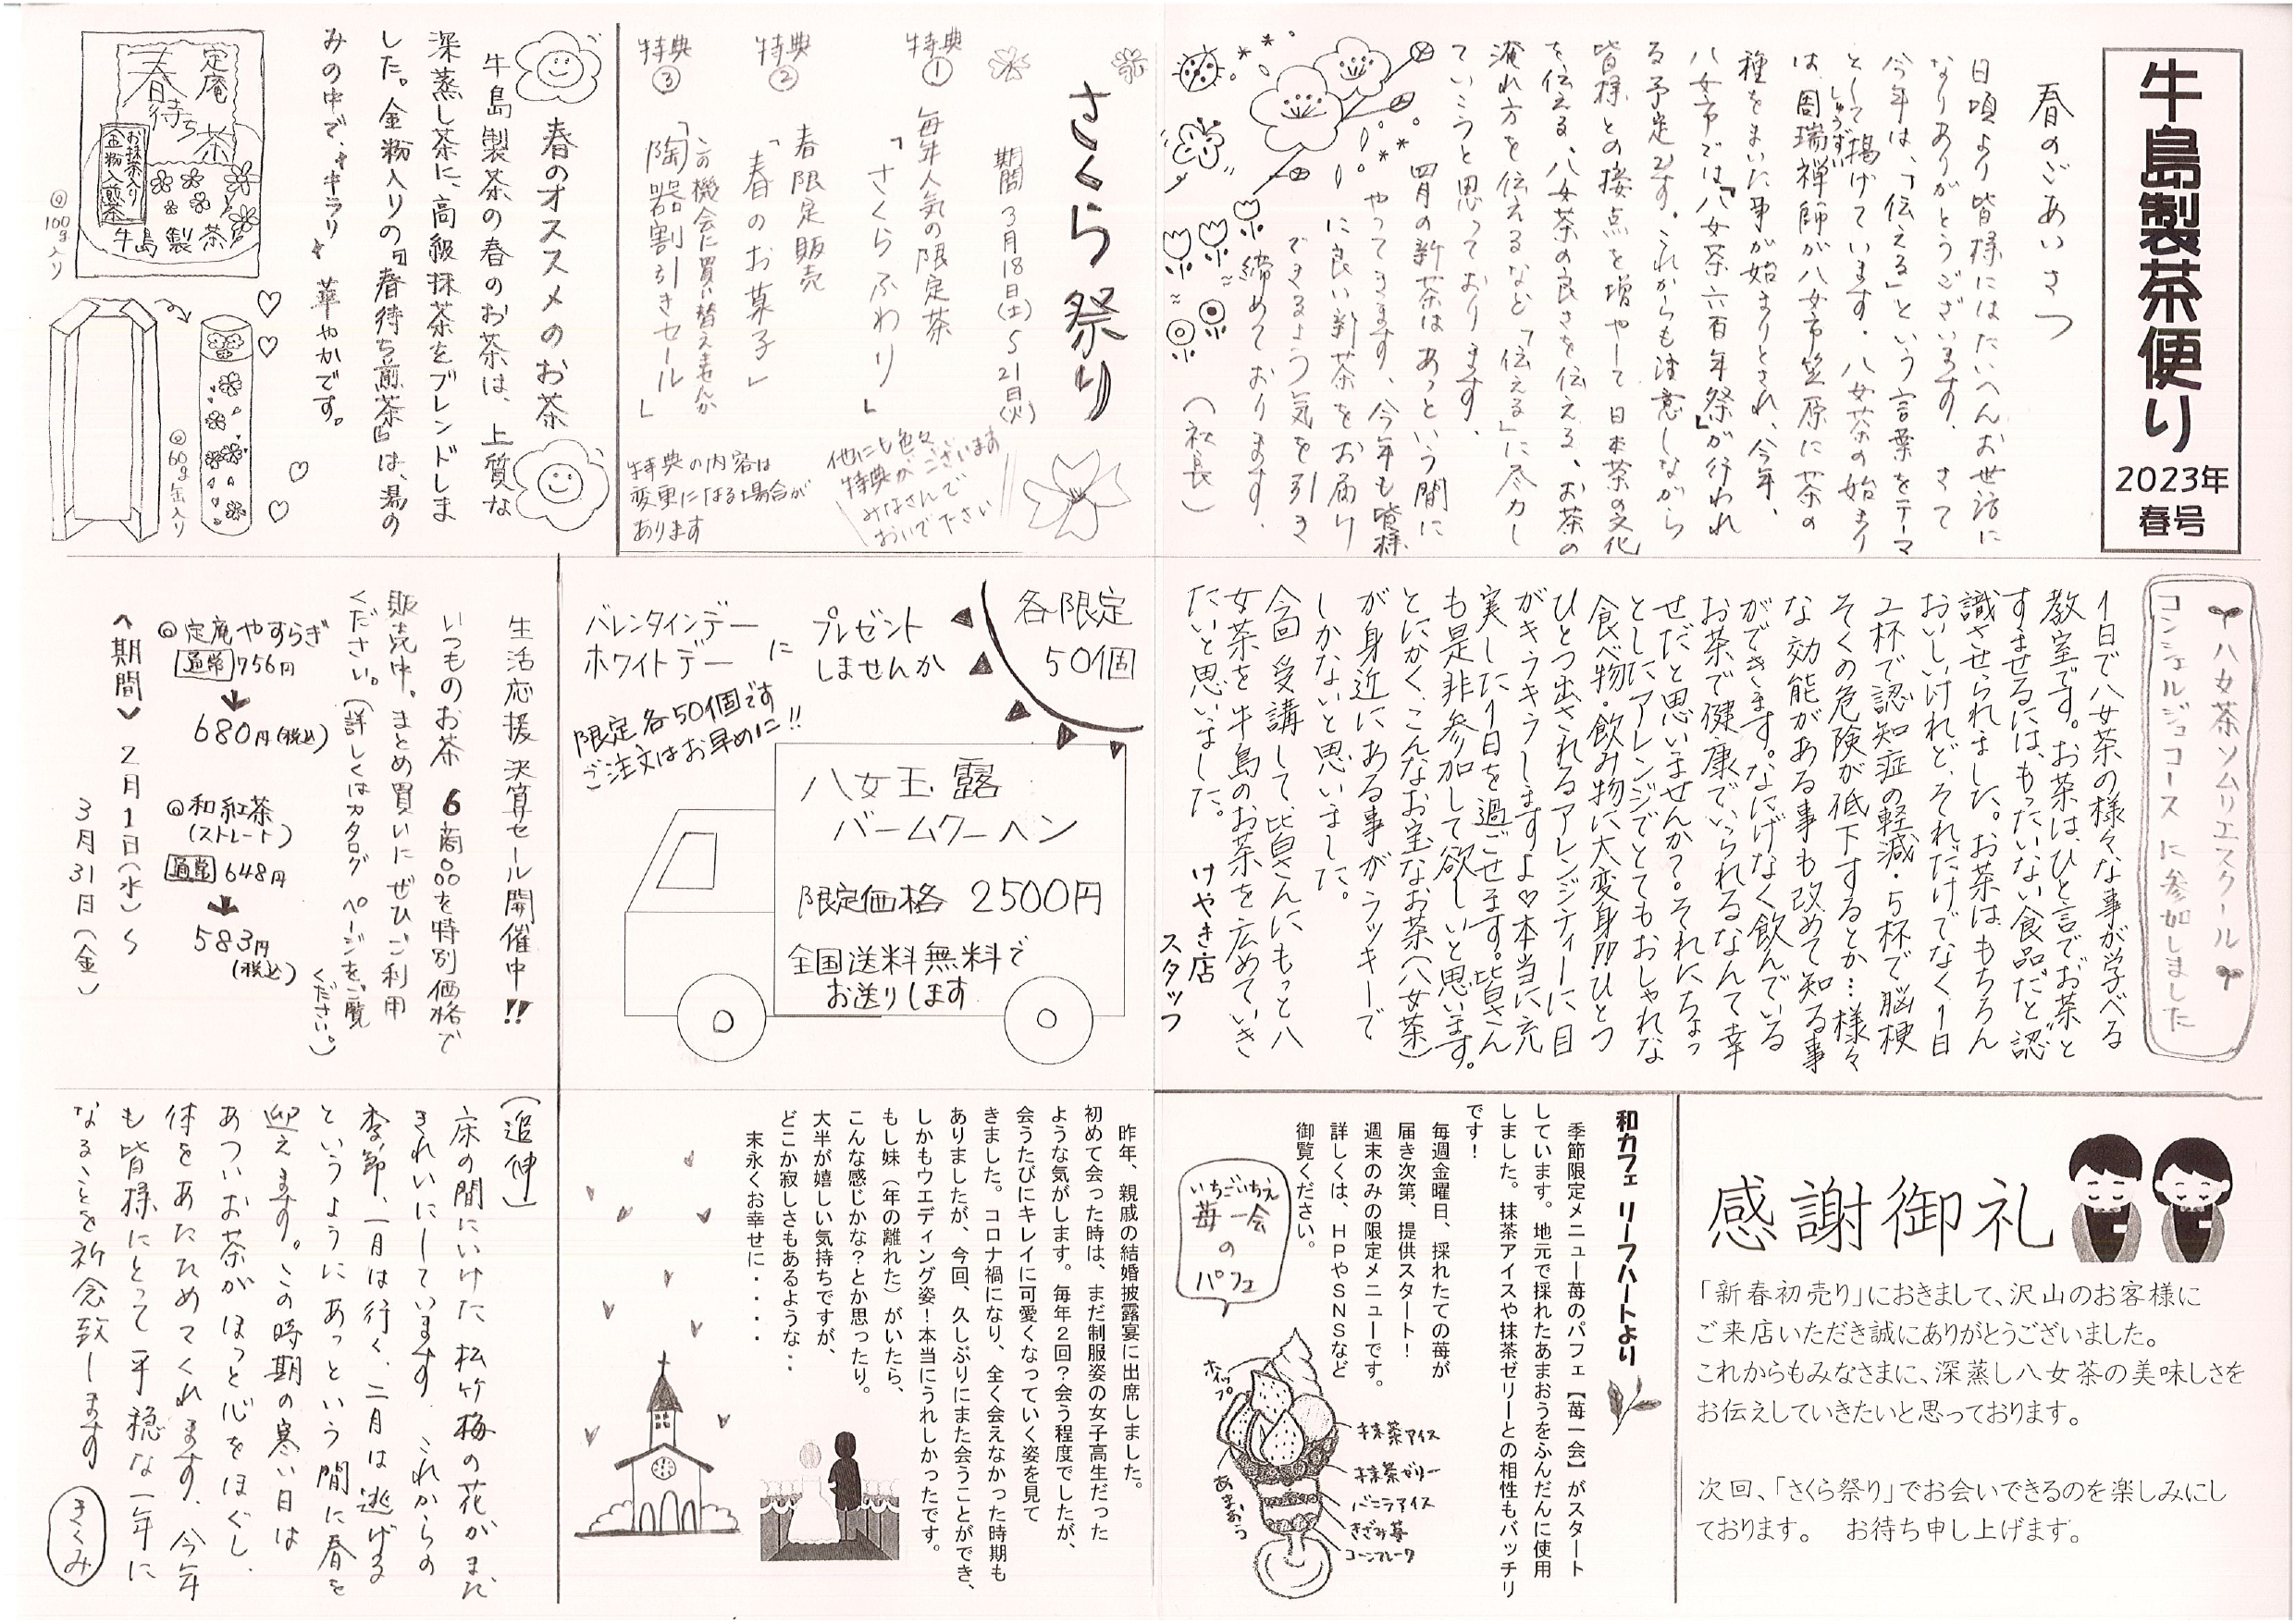 牛島製茶便り
2023年
春号
春のごあいさつ
日頃より皆様にはたいへんお世話に
なりありがとうございます。さて
今年は、「伝える」という言葉をテーマ
として掲げています。八女茶の始まり
は、周瑞禅師が八女市笠原に茶の
しゅうずい
種をまいた事が始まりとされ、今年、
八女市では「八女茶六百年祭」が行われ
る予定です。これからも注意しながら
皆様との接点を増やして日本茶の文化
を伝える、八女茶の良さを伝える、お茶の
淹れ方を伝えるなど「伝える」に尽力し
ていこうと思っております。
四月の新茶はあっという間に
やってきます、今年も皆様
に良い新茶をお届け
できるよう気を引き
締めております。
(社長)
さくら祭り
期間 3月18日(土)〜21日(火)
特典① 毎年人気の限定茶
「さくらふわり」
特典② 春限定販売
「春のお菓子」
特典③ この機会に買い替えませんか
「陶器割引きセール」
他にも色々
特典がございます
みなさんで
おいで下さい
特典の内容は
変更になる場合が
あります
春のオススメのお茶
牛島製茶の春のお茶は、上質な
深蒸し茶に、高級抹茶をブレンドしま
した。金粉入りの『春待ち煎茶』は、湯の
みの中で、キラリ 華やかです。
定庵
春待ち茶
お抹茶入り
金粉入煎茶
牛島製茶
◎100g入り
◎60g缶入り
八女茶ソムリエスクール
コンシェルジュコースに参加しました
1日で八女茶の様々な事が学べる
教室です。お茶は、ひと言でお茶と
すませるには、もったいない食品だと認
識させられました。お茶はもちろん
おいしいけれど、それだけでなく、1日
2杯で認知症の軽減・5杯で脳梗
そくの危険が低下するとか…様々
な効能がある事も改めて知る事
ができます。なにげなく飲んでいる
お茶で健康でいられるなんて幸
せだと思いませんか?。それにちょっ
としたアレンジでとてもおしゃれな
食べ物・飲み物に大変身!!ひとつ
ひとつ出されるアレンジティーに目
がキラキラしますよ♡本当に充
実した1日を過ごせます。皆さん
も是非参加して欲しいと思います。
とにかく、こんなお宝なお茶(八女茶)
が身近にある事がラッキーで
しかないと思いました。
今回受講して、皆さんにもっと八
女茶を牛島のお茶を広めていき
たいと思いました。
けやき店
スタッフ
各限定
50個
バレンタインデー
ホワイトデー
に
プレゼント
しませんか
限定各50個です
ご注文はお早めに!!
八女玉露
バームクーヘン
限定価格 2500円
全国送料無料で
お送りします
生活応援 決算セール開催中!!
いつものお茶 6商品を特別価格で
販売中。まとめ買いにぜひご利用
ください。(詳しくはカタログ ページをご覧
ください。)
◎定庵やすらぎ
通常 756円
680円(税込)
◎和紅茶
(ストレート)
通常 648円
583円
(税込)
<期間> 2月1日(水)〜
3月31日(金)
感謝御礼
「新春初売り」におきまして、沢山のお客様に
ご来店いただき誠にありがとうございました。
これからもみなさまに、深蒸し八女茶の美味しさを
お伝えしていきたいと思っております。
次回、「さくら祭り」でお会いできるのを楽しみにし
ております。 お待ち申し上げます。
和カフェ リーフハートより
季節限定メニュー苺のパフェ【苺一会】がスタート
しています。地元で採れたあまおうをふんだんに使用
しました。抹茶アイスや抹茶ゼリーとの相性もバッチリ
です!
毎週金曜日、採れたての苺が
届き次第、提供スタート!
週末のみの限定メニューです。
詳しくは、HPやSNSなど
御覧ください。
いちごいちえ
苺一会
の
パフェ
ホイップ
あまおう
抹茶アイス
抹茶ゼリー
バニラアイス
きざみ苺
コーンフレーク
昨年、親戚の結婚披露宴に出席しました。
初めて会った時は、まだ制服姿の女子高生だった
ような気がします。毎年2回?会う程度でしたが、
会うたびにキレイに可愛くなっていく姿を見て
きました。コロナ禍になり、全く会えなかった時期も
ありましたが、今回、久しぶりにまた会うことができ、
しかもウエディング姿!本当にうれしかったです。
もし妹(年の離れた)がいたら、
こんな感じかな?とか思ったり。
大半が嬉しい気持ちですが、
どこか寂しさもあるような・・
末永くお幸せに・・・・
(追伸)
床の間にいけた松竹梅の花がまだ
きれいにしています。これからの
季節、一月は行く、二月は逃げる
というようにあっという間に春を
迎えます。この時期の寒い日は
あついお茶がほっと心をほぐし、
体をあたためてくれます。今年
も皆様にとって平穏な一年に
なることを祈念致します
きくみ